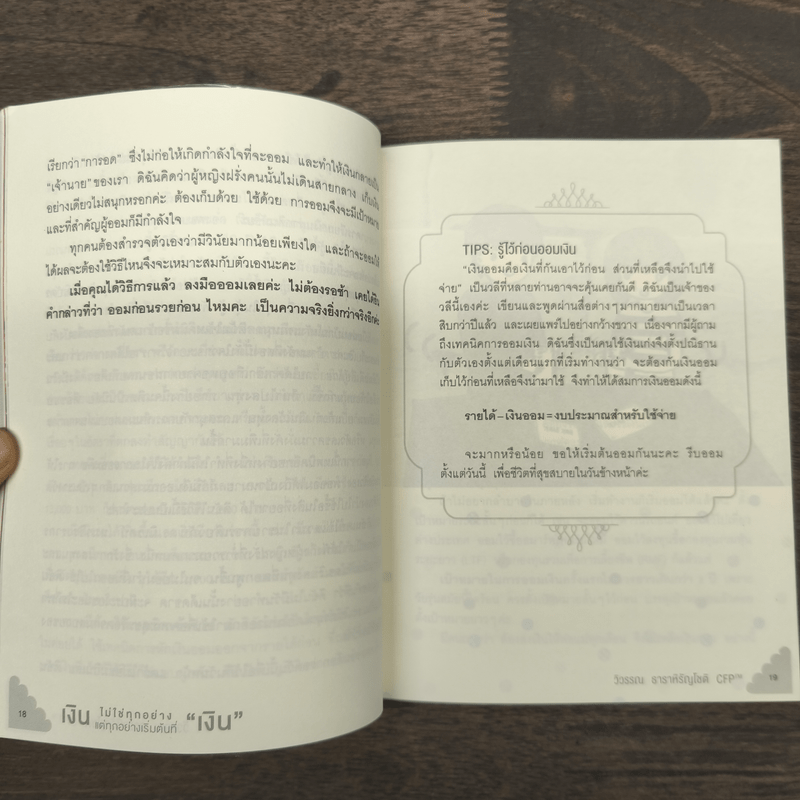 เรียกว่า “การอด” ซึ่งไม่ก่อให้เกิดกำลังใจที่จะออม และทำให้เงินกลายเป็น
“เจ้านาย” ของเรา ดิฉันคิดว่าผู้หญิงฝรั่งคนนั้นไม่เดินสายกลาง เก็บเงิน
อย่างเดียวไม่สนุกหรอกค่ะ ต้องเก็บด้วย ใช้ด้วย การออมจึงจะมีเป้าหมาย
และที่สำคัญผู้ออมก็มีกำลังใจ
ทุกคนต้องสำรวจตัวเองว่ามีวินัยมากน้อยเพียงใด และถ้าจะออมให้
ได้ผลจะต้องใช้วิธีไหนจึงจะเหมาะสมกับตัวเองนะคะ
เมื่อคุณได้วิธีการแล้ว ลงมือออมเลยค่ะ ไม่ต้องรอช้า เคยได้ยิน
คำกล่าวที่ว่า ออมก่อนรวยก่อน ไหมคะ เป็นความจริงยิ่งกว่าจริงอีกค่ะ
18
เงิน ไม่ใช่ทุกอย่าง
แต่ทุกอย่างเริ่มต้นที่ “เงิน”
TIPS: รู้ไว้ก่อนออมเงิน
“เงินออมคือเงินที่กันเอาไว้ก่อน ส่วนที่เหลือจึงนำไปใช้
จ่าย” เป็นวลีที่หลายท่านอาจจะคุ้นเคยกันดี ดิฉันเป็นเจ้าของ
วลีนี้เองค่ะ เขียนและพูดผ่านสื่อต่างๆ มากมายมาเป็นเวลา
สิบกว่าปีแล้ว และเผยแพร่ไปอย่างกว้างขวาง เนื่องจากมีผู้ถาม
ถึงเทคนิคการออมเงิน ดิฉันซึ่งเป็นคนใช้เงินเก่งจึงตั้งปณิธาน
กับตัวเองตั้งแต่เดือนแรกที่เริ่มทำงานว่า จะต้องกันเงินออม
เก็บไว้ก่อนที่เหลือจึงนำมาใช้ จึงทำให้ได้สมการเงินออมดังนี้
รายได้ – เงินออม = งบประมาณสำหรับใช้จ่าย
จะมากหรือน้อย ขอให้เริ่มต้นออมกันนะคะ รีบออม
ตั้งแต่วันนี้ เพื่อชีวิตที่สุขสบายในวันข้างหน้าค่ะ
วิวรรณ ธาราหิรัญโชติ CFP™
19